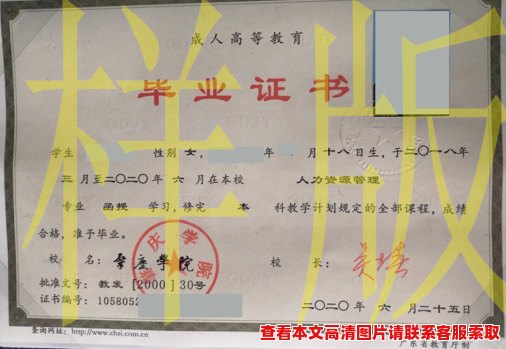 成人高等教育
毕业证书
学生 性别 女, 年 月十八日生,于二〇一八年
三月至二〇二〇年 六月在本校 人力资源管理
专业 函授 学习,修完 本 科教学计划规定的全部课程,成绩
合格,准予毕业。
校 名: 肇庆学院 校 长:
批准文号: 教发[2000]30号
证书编号: 1058052
二〇二〇年 六月二十五日
查询网址: http://www.chsi.com.cn
广东省教育厅制
样版
查看本文高清图片请联系客服索取